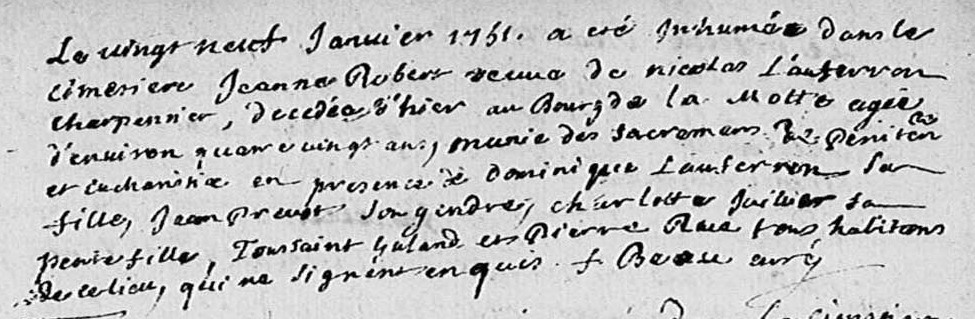 Le vingt neuf Janvier 1751. a eté Inhumée dans le
cimetiere Jeanne Robert veuve de nicolas Lauterron
charpentier, decedée d'hier au Bourg de la Motte agée
d'environ quatre vingt ans, munie des sacremens de peniten
et euchanistie en presence de Dominique Lauterron Sa
fille, Jean Prevost Son gendre, charlotte Juilier Sa
petite fille, Toussaint Galand et Pierre Rue tous habitans
de ce lieu, qui ne signent enquis. f Beau curé